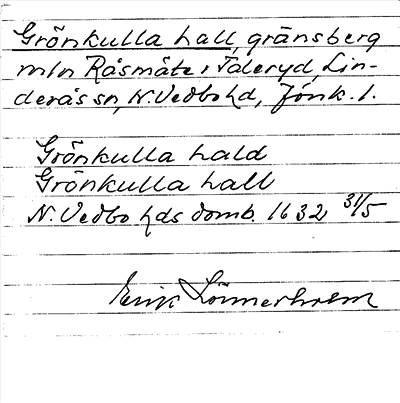 Grönkulla hall, gränsberg
mln Råsmåta i Täderyd, Lin-
derås sn, N. Vedbo hd, Jönk. l.
Grönkulla hald
Grönkulla hall
N. Vedbo hds domb. 1632 31/5
Erik Lönnerholm